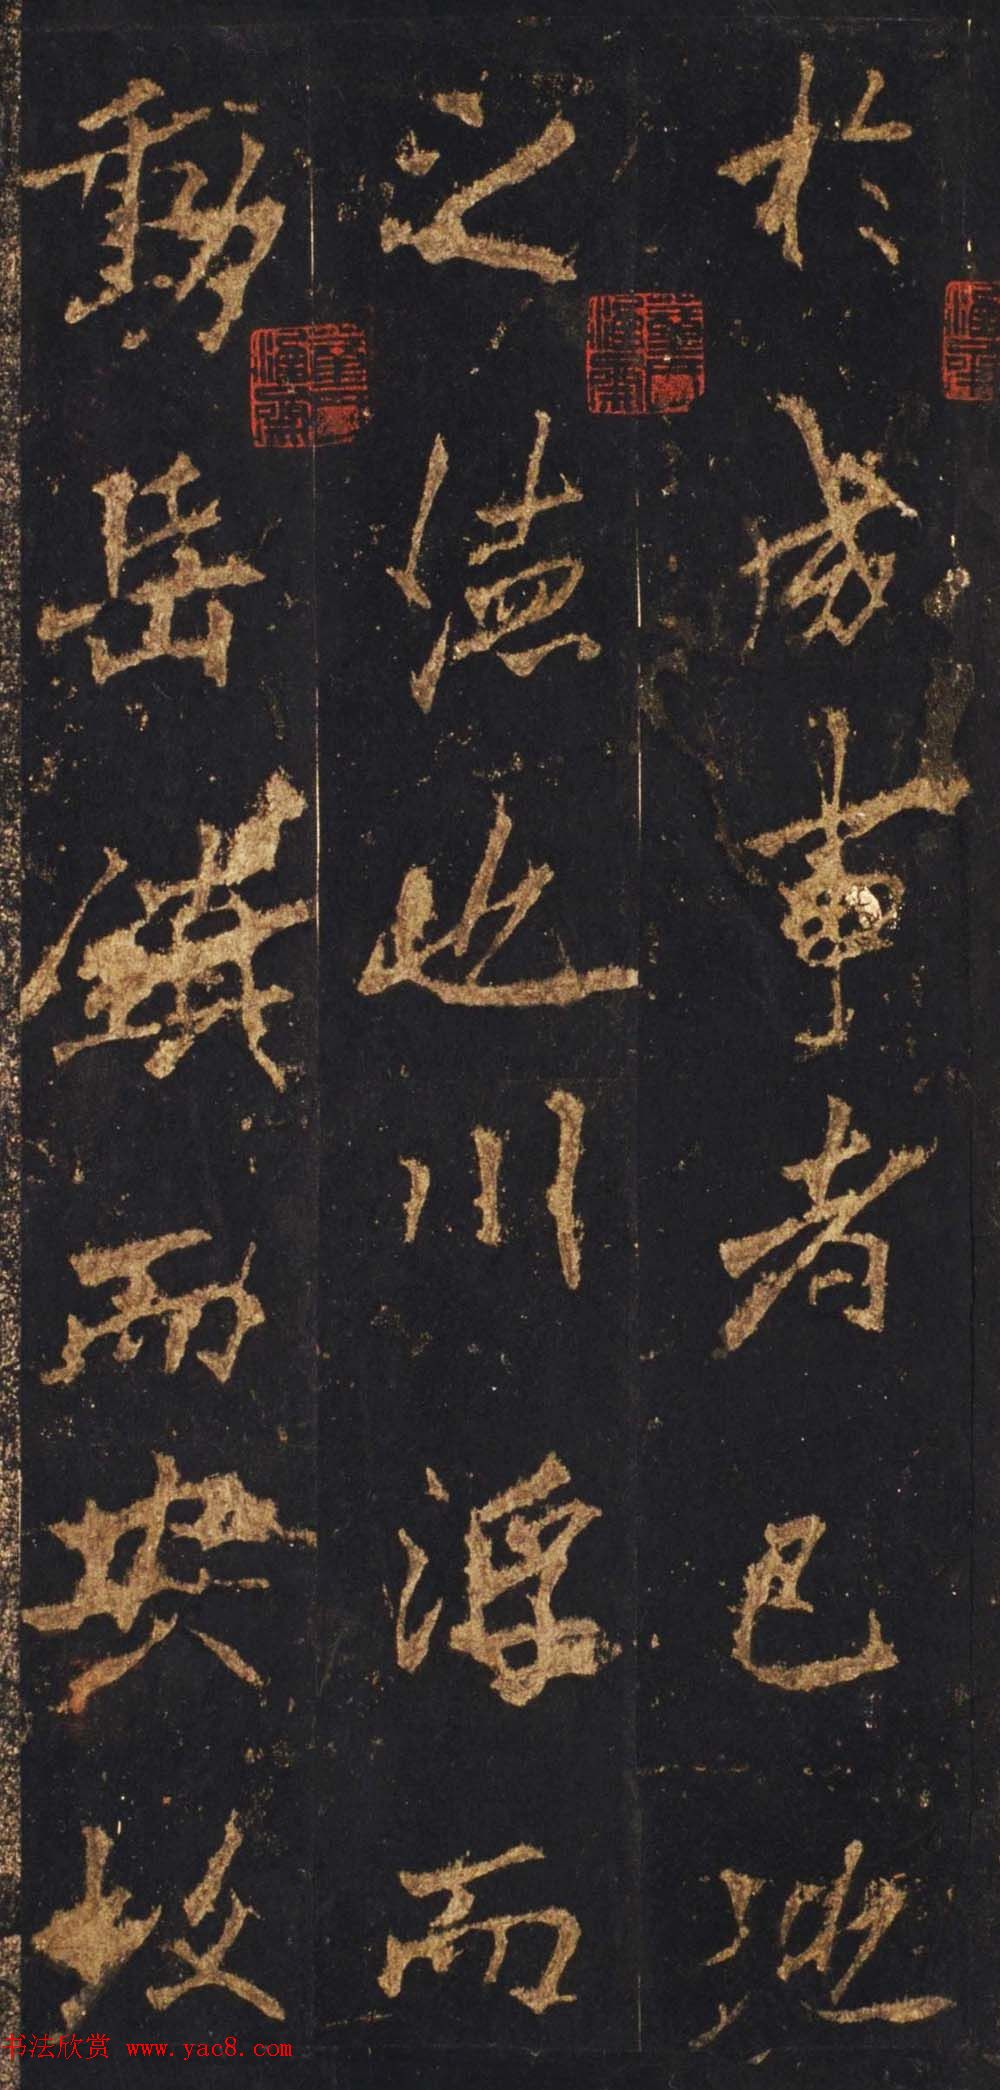 於成事者已地
之德也川浮而
動岳鎮而安故
书法欣赏 www.yac8.com